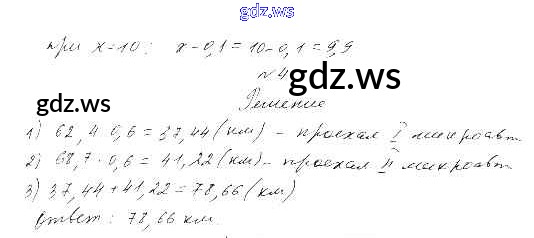 gdz.ws
при x=10: x-0,1=10-0,1=9,9
№4
gdz.ws
gdz.ws
Решение
1) 62,4·0,6=37,44(км) - проехал I микроавт.
2) 68,7·0,6=41,22(км) - проехал II микроавт.
3) 37,44+41,22=78,66(км)
Ответ: 78,66 км